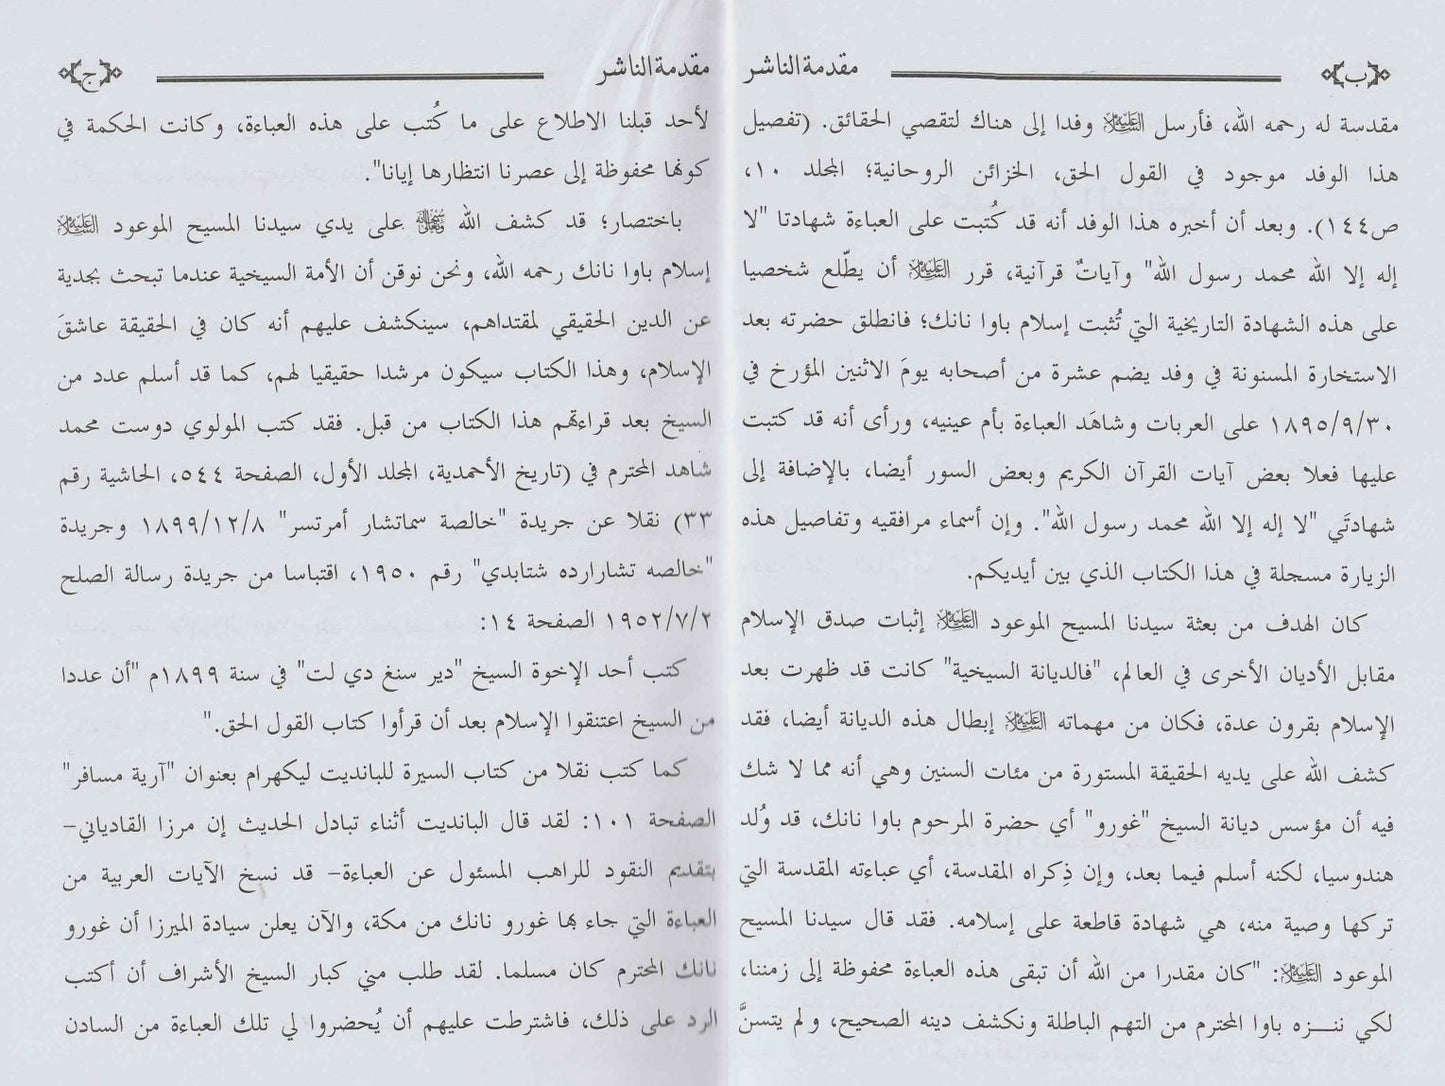 مقدمة الناشر
ب
مقدسة له رحمه الله، فأرسل عليه السلام وفدا إلى هناك لتقصي الحقائق. (تفصيل
هذا الوفد موجود في القول الحق، الخزائن الروحانية؛ المجلد ١٠،
ص١٤٤). وبعد أن أخبره هذا الوفد أنه قد كُتبت على العباءة شهادتا "لا
إله إلا الله محمد رسول الله" وآياتٌ قرآنية، قرر عليه السلام أن يطّلع شخصيا
على هذه الشهادة التاريخية التي تُثبت إسلام باوا نانك؛ فانطلق حضرته بعد
الاستخارة المسنونة في وفد يضم عشرة من أصحابه يومَ الاثنين المؤرخ في
١٨٩٥/٩/٣٠ على العربات وشاهَد العباءة بأم عينيه، ورأى أنه قد كتبت
عليها فعلا بعض آيات القرآن الكريم وبعض السور أيضا، بالإضافة إلى
شهادتَي "لا إله إلا الله محمد رسول الله". وإن أسماء مرافقيه وتفاصيل هذه
الزيارة مسجلة في هذا الكتاب الذي بين أيديكم.
كان الهدف من بعثة سيدنا المسيح الموعود عليه السلام إثبات صدق الإسلام
مقابل الأديان الأخرى في العالم، "فالديانة السيخية" كانت قد ظهرت بعد
الإسلام بقرون عدة، فكان من مهماته عليه السلام إبطال هذه الديانة أيضا، فقد
كشف الله على يديه الحقيقة المستورة من مئات السنين وهي أنه مما لا شك
فيه أن مؤسس ديانة السيخ "غورو" أي حضرة المرحوم باوا نانك، قد وُلد
هندوسيا، لكنه أسلم فيما بعد، وإن ذِكراه المقدسة، أي عباءته المقدسة التي
تركها وصية منه، هي شهادة قاطعة على إسلامه. فقد قال سيدنا المسيح
الموعود عليه السلام: "كان مقدرا من الله أن تبقى هذه العباءة محفوظة إلى زمننا،
لكي ننـــزه باوا المحترم من التهم الباطلة ونكشف دينه الصحيح، ولم يتسنَّ
مقدمة الناشر
ج
لأحد قبلنا الاطلاع على ما كُتب على هذه العباءة، وكانت الحكمة في
كونها محفوظة إلى عصرنا انتظارها إيانا".
باختصار؛ قد كشف الله سبحانه وتعالى على يدي سيدنا المسيح الموعود عليه السلام
إسلام باوا نانك رحمه الله، ونحن نوقن أن الأمة السيخية عندما تبحث بجدية
عن الدين الحقيقي لمقتداهم، سينكشف عليهم أنه كان في الحقيقة عاشقَ
الإسلام، وهذا الكتاب سيكون مرشدا حقيقيا لهم، كما قد أسلم عدد من
السيخ بعد قراءتهم هذا الكتاب من قبل. فقد كتب المولوي دوست محمد
شاهد المحترم في (تاريخ الأحمدية، المجلد الأول، الصفحة ٥٤٤، الحاشية رقم
٣٣) نقلا عن جريدة "خالصة سماتشار أمرتسر" ١٨٩٩/١٢/٨ وجريدة
"خالصه تشارارده شتابدي" رقم ١٩٥٠، اقتباسا من جريدة رسالة الصلح
١٩٥٢/٧/٢ الصفحة ١٤:
كتب أحد الإخوة السيخ "دير سنغ دي لت" في سنة ١٨٩٩م "أن عددا
من السيخ اعتنقوا الإسلام بعد أن قرأوا كتاب القول الحق."
كما كتب نقلا من كتاب السيرة للبانديت ليكهرام بعنوان "آرية مسافر"
الصفحة ١٠١: لقد قال البانديت أثناء تبادل الحديث إن مرزا القادياني-
بتقديم النقود للراهب المسئول عن العباءة- قد نسخ الآيات العربية من
العباءة التي جاء بها غورو نانك من مكة، والآن يعلن سيادة الميرزا أن غورو
نانك المحترم كان مسلما. لقد طلب مني كبار السيخ الأشراف أن أكتب
الرد على ذلك، فاشترطت عليهم أن يُحضروا لي تلك العباءة من السادن